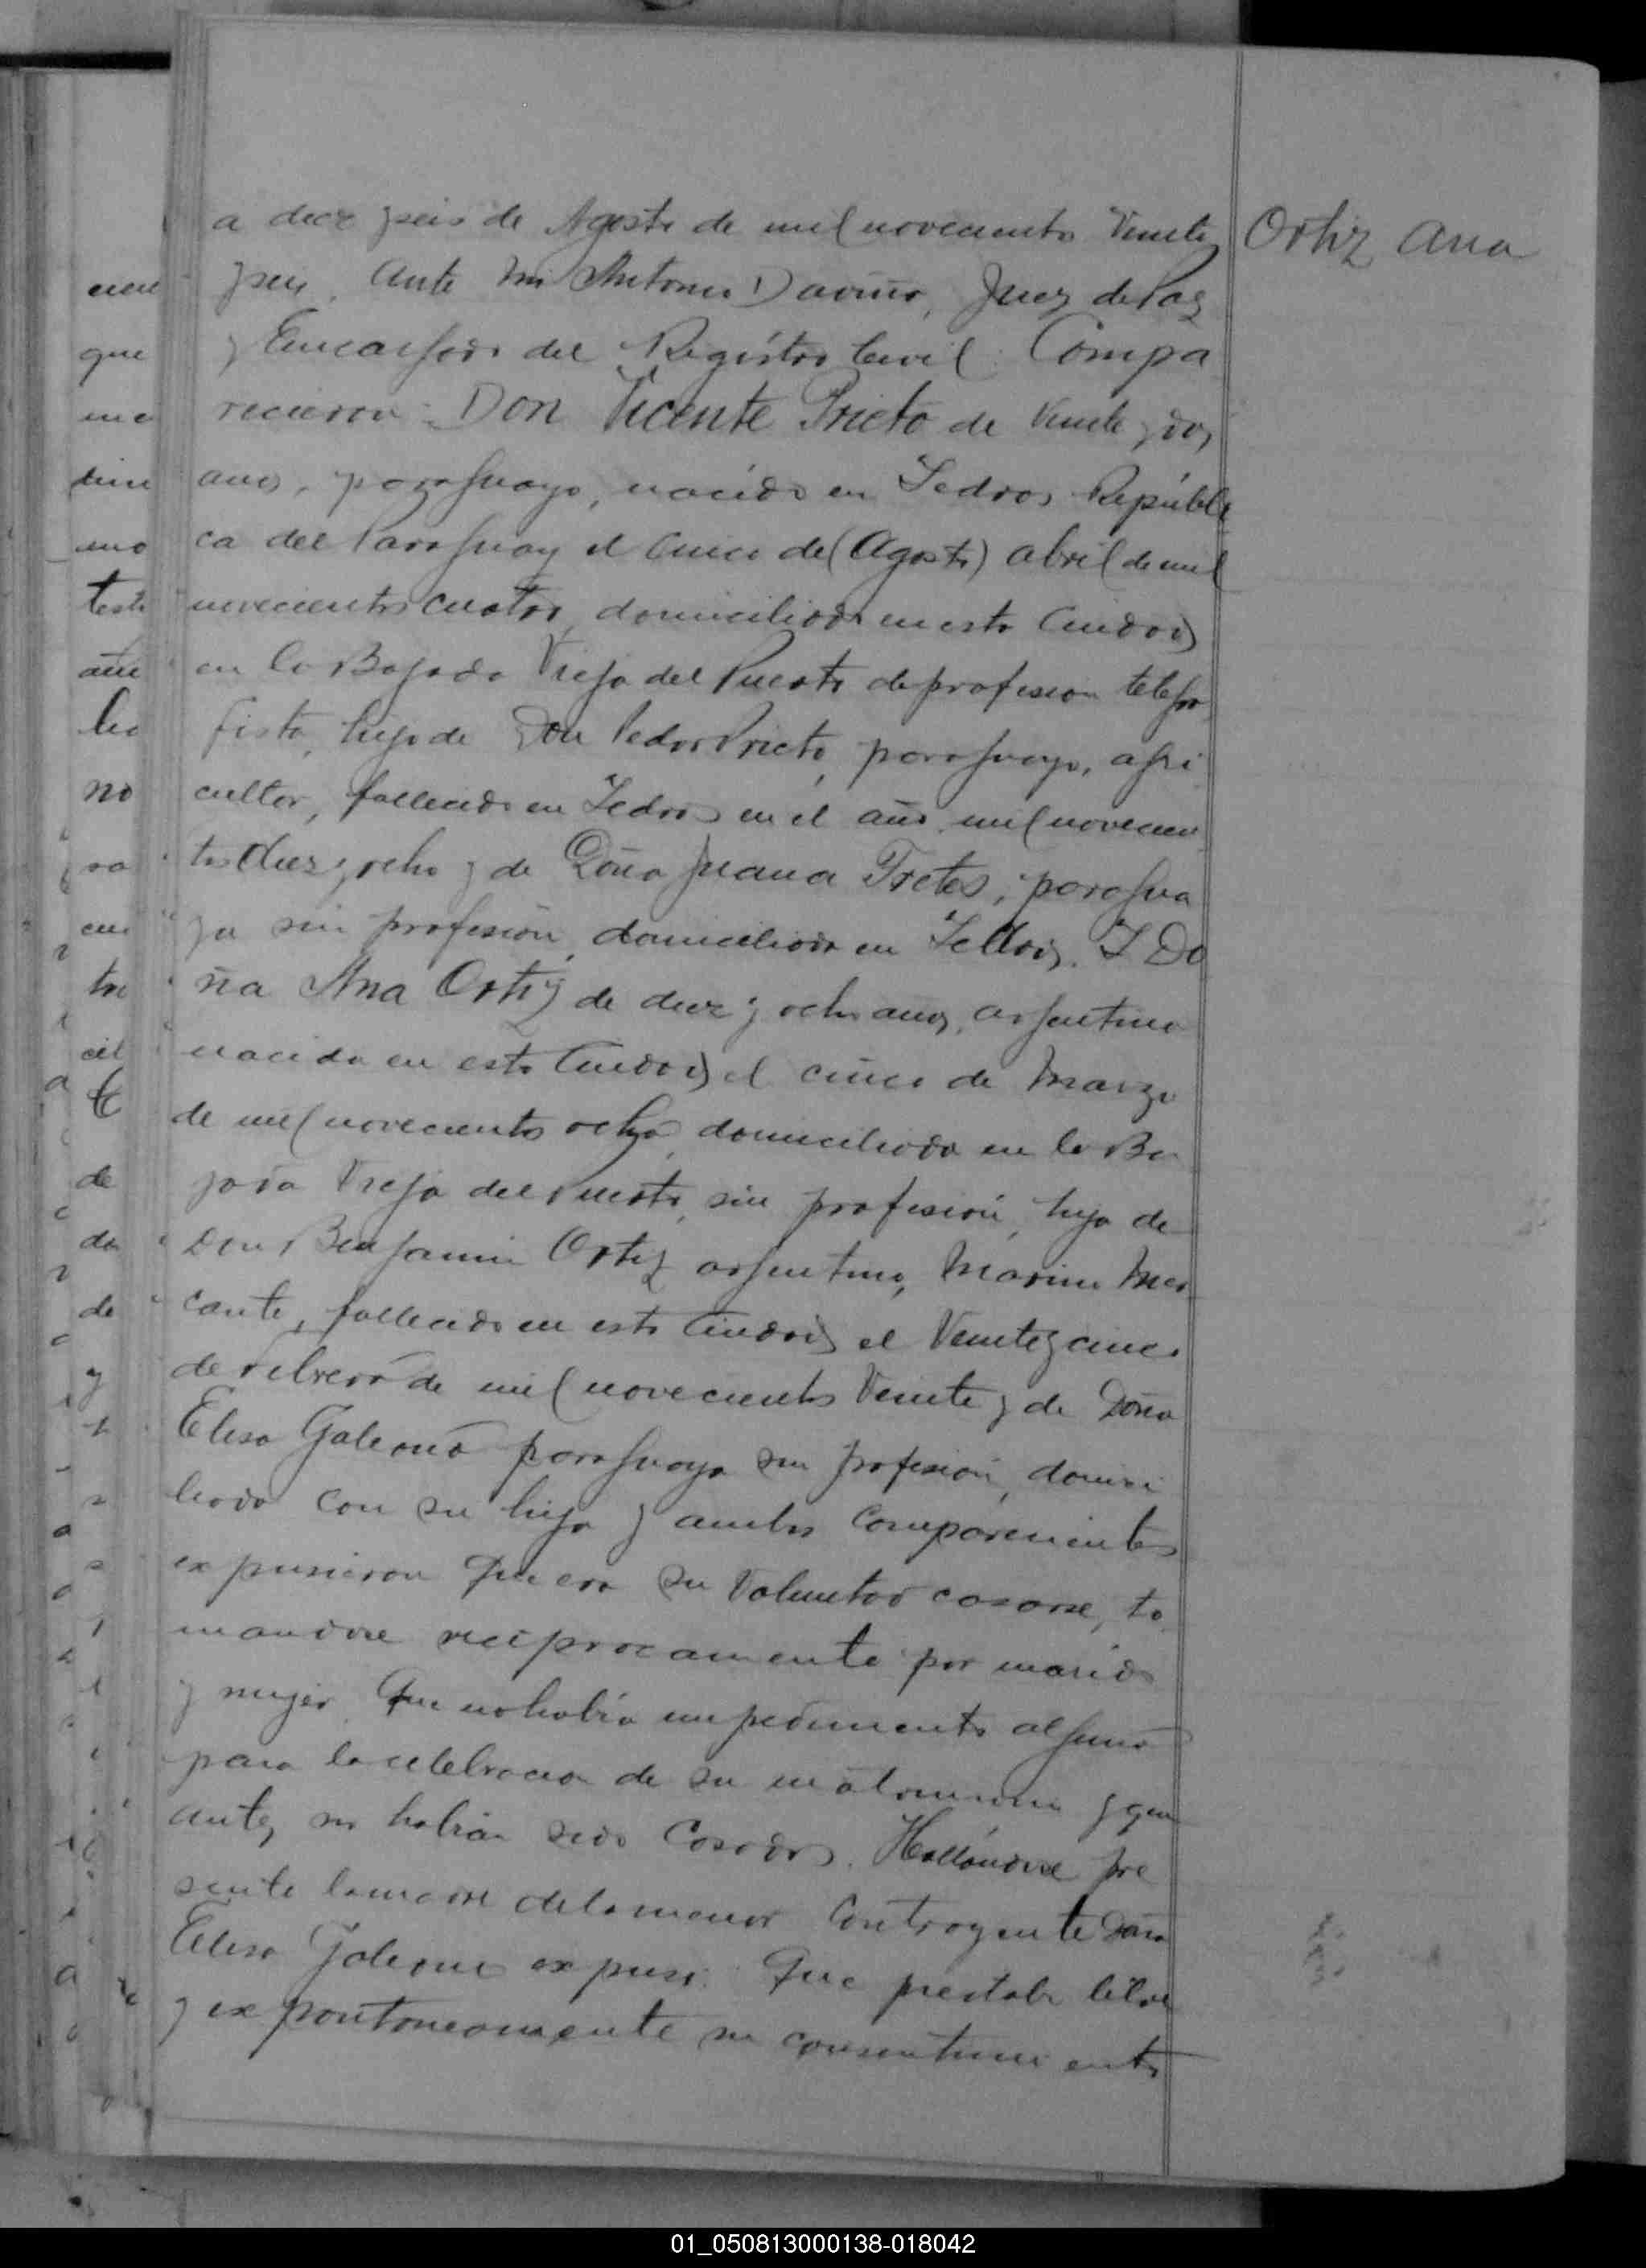 a diez y seis de Agosto de mil novecientos Veinte
y seis, ante mi Antonio Daviña, Juez de Paz
y Encargado del Registro Civil: Compa
recieron: Don Vicente Prieto de Veinte y dos
años, paraguayo, nacido en Pedros Repúbli
ca del Paraguay el cinco de (Agosto) abril de mil
novecientos cuatro, domiciliado en esta Ciudad
en la Bajada Vieja del Puerto de profesion telegra
fista, hijo de Don Pedro Prieto, paraguayo, agri
cultor, fallecido en en el año mil novecien
tos diez y ocho y de Doña Juana Fretes, paragua
ya sin profesión, domiciliada en Y Do
ña Ana Ortiz de diez y ocho años, argentina
nacida en esta Ciudad el cinco de Marzo
de mil novecientos ocho, domiciliada en la Ba
jada Vieja del Puerto, sin profesión, hija de
Don Benjamin Ortiz argentino, Marino Mer
cante, fallecido en esta Ciudad el Veinte y cinco
de Febrero de mil novecientos Veinte y de Doña
Elisa Galeano paraguaya sin profesión, domici
liada con su hija y ambos comparecientes
expusieron Que era su Voluntad casarse, to
mandose reciprocamente por marido
y mujer. Que no habia impedimento alguno
para la celebracion de su matrimonio y que
antes no habian sido Casados. Hallándose pre
sente la madre de la menor Contrayente Doña
Elisa Galeano expuso: Que prestaba libre
y expontaneamente su consentimiento
Ortiz Ana
que
no
de
de
y
01_050813000138-018042